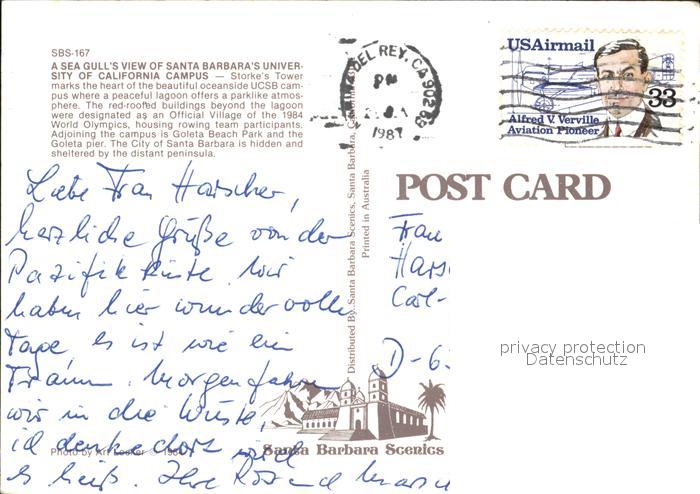 SBS-167
A SEA GULL'S VIEW OF SANTA BARBARA'S UNIVER-
SITY OF CALIFORNIA CAMPUS — Storke's Tower
marks the heart of the beautiful oceanside UCSB cam-
pus where a peaceful lagoon offers a parklike atmos-
phere. The red-roofted buildings beyond the lagoon
were designated as an Official Village of the 1984
World Olympics, housing rowing team participants.
Adjoining the campus is Goleta Beach Park and the
Goleta pier. The City of Santa Barbara is hidden and
sheltered by the distant peninsula.
Liebe Frau Harscher,
herzliche Grüße von der
Pazifikküste. Wir
haben hier wundervolle
Tage, es ist wie ein
Traum. Morgen fahren
wir in die Wüste,
ich denke dort wird
es heiß. Ihre
Photo by Art
Distributed By: Santa Barbara Scenics, Santa Barbara,
Printed in Australia
DEL REY, CA 90289
PM
1987
USAirmail
33
Alfred V. Verville
Aviation Pioneer
POST CARD
Frau
Hars
Carl-
D-6
privacy protection
Datenschutz
Santa Barbara Scenics